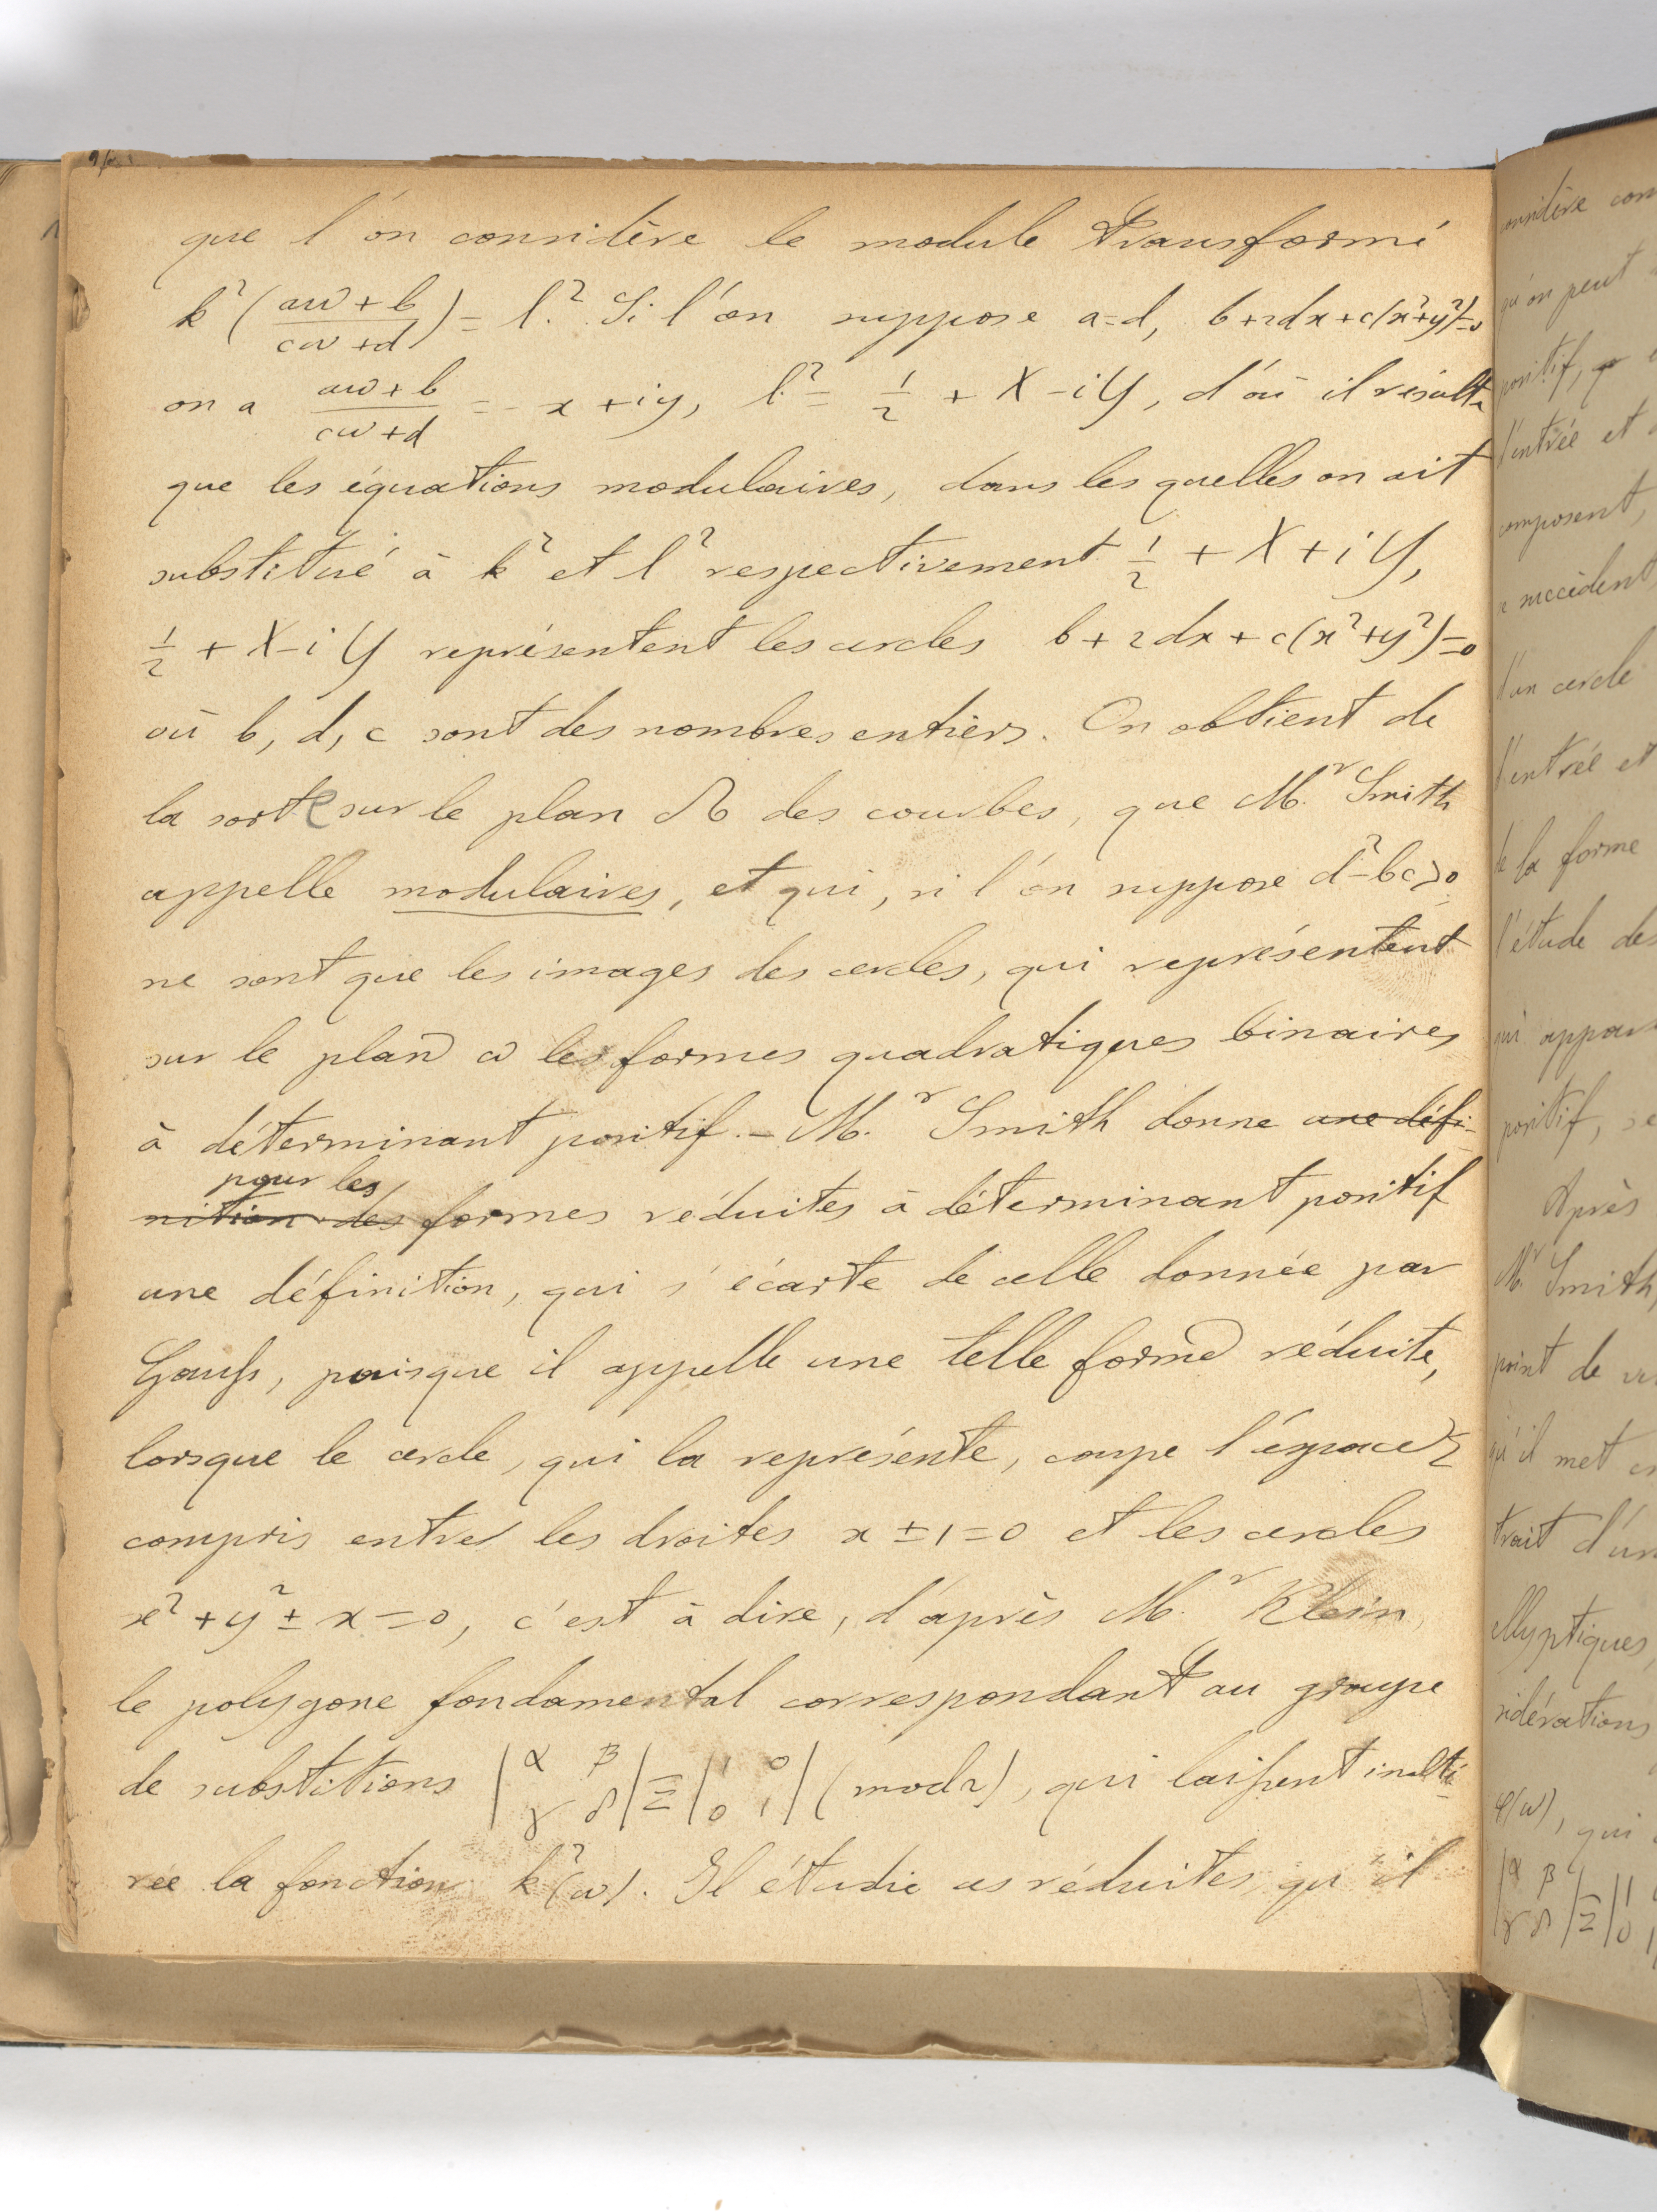 que l'on considère le module transformé
k²((aω+b)/(cω+d)) = l². Si l'on suppose a=d, b+2dx+c(x²+y²)=0
on a (aω+b)/(cω+d) = -x+iy, l² = 1/2 + X-iY, d'où il résulte
que les équations modulaires, dans les quelles on ait
substitué à k² et l² respectivement 1/2 + X+iY,
1/2 + X-iY représentent les cercles b+2dx+c(x²+y²)=0
où b, d, c sont des nombres entiers. On obtient de
la sorte sur le plan Ω des courbes, que M.r Smith
appelle modulaires, et qui, si l'on suppose d²-bc>0
ne sont que les images des cercles, qui représentent
sur le plan ω les formes quadratiques binaires
à déterminant positif. — M.r Smith donne une défi-
pour les
nition des formes réduites à déterminant positif
une définition, qui s'écarte de celle donnée par
Gauss, puisque il appelle une telle forme réduite,
lorsque le cercle, qui la représente, coupe l'éspace Σ
compris entre les droites x ± 1 = 0 et les cercles
x² + y² ± x = 0, c'est à dire, d'après M.r Klein,
le polygone fondamental correspondant au groupe
de substitutions |α β γ δ| ≡ |1 0 0 1| (mod 2), qui laissent inalté-
rée la fonction k²(ω). Il étudie ces réduites, qu'il
considère com
qu'on peut
positif,
l'entrée et
composent,
succèdent
d'un cercle
l'entrée et
de la forme
l'étude des
qui appar
positif, se
Après
M.r Smith,
point de vu
qu'il met en
trait d'un
ellyptiques
sidérations
φ(ω), qui
|α β γ δ| ≡ |1 0 1